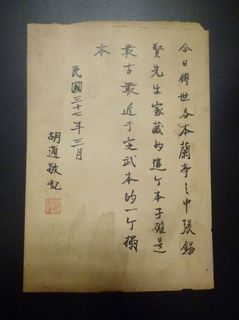 今日傳世各本蘭亭之中張錫
賢先生家藏的這个本子確是
最古最近于定武本的一个搨
本
民國三十七年三月
胡適敬記